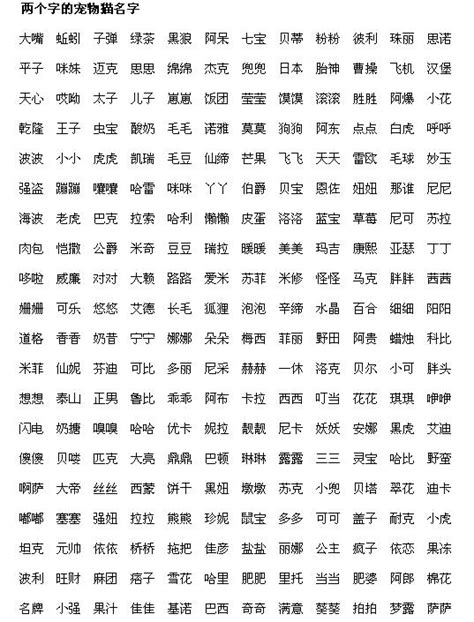 两个字的宠物猫名字
大嘴 蚯蚓 子弹 绿茶 黑狼 阿呆 七宝 贝蒂 粉粉 彼利 珠丽 思诺
平子 咪妹 迈克 思思 绵绵 杰克 兜兜 日本 胎神 曹操 飞机 汉堡
天心 哎呦 太子 儿子 崽崽 饭团 莹莹 馍馍 滚滚 胜胜 阿爆 小花
乾隆 王子 虫宝 酸奶 毛毛 诺雅 莫莫 狗狗 阿东 点点 白虎 呼呼
波波 小小 虎虎 凯瑞 毛豆 仙缔 芒果 飞飞 天天 雷欧 毛球 妙玉
强盗 蹦蹦 嚷嚷 哈雷 咪咪 丫丫 伯爵 贝宝 恩佐 妞妞 那谁 尼尼
海波 老虎 巴克 拉索 哈利 懒懒 皮蛋 洛洛 蓝宝 草莓 尼可 苏拉
肉包 恺撒 公爵 米奇 豆豆 瑞拉 暖暖 美美 玛吉 康熙 亚瑟 丁丁
哆啦 威廉 对对 大赖 路路 爱米 苏菲 米修 怪怪 马克 胖胖 茜茜
姗姗 可乐 悠悠 艾德 长毛 狐狸 泡泡 辛缔 水晶 百合 细细 阳阳
道格 香香 奶昔 宁宁 娜娜 朵朵 梅西 菲丽 野田 阿贵 蜡烛 科比
米菲 仙妮 芬迪 可比 多丽 尼采 赫赫 一休 洛克 贝尔 小可 胖头
想想 泰山 正男 鲁比 乖乖 阿布 卡拉 西西 叮当 花花 琪琪 咿咿
闪电 奶搪 嗅嗅 哈哈 优卡 妮拉 靓靓 尼卡 妖妖 安娜 黑虎 艾迪
傻傻 贝喽 匹克 大亮 鼎鼎 巴顿 琳琳 露露 三三 灵宝 哈比 野蛮
啊萨 大帝 丝丝 西蒙 饼干 黑妞 墩墩 苏克 小兜 贝塔 翠花 迪卡
嘟嘟 塞塞 强妞 拉拉 熊熊 珍妮 鼠宝 多多 可可 盖子 耐克 小虎
坦克 元帅 依依 桥桥 拖把 佳彦 盐盐 丽娜 公主 疯子 依恋 果冻
波利 旺财 麻团 痞子 雪花 哈里 肥肥 里托 当当 肥婆 阿郎 棉花
名牌 小强 果汁 佳佳 基诺 巴西 奇奇 满意 葵葵 拍拍 梦露 萨萨